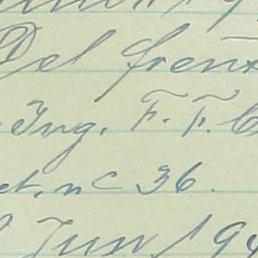 Del frent
Ing. F. F. C
et. n c 36.
Jun 194